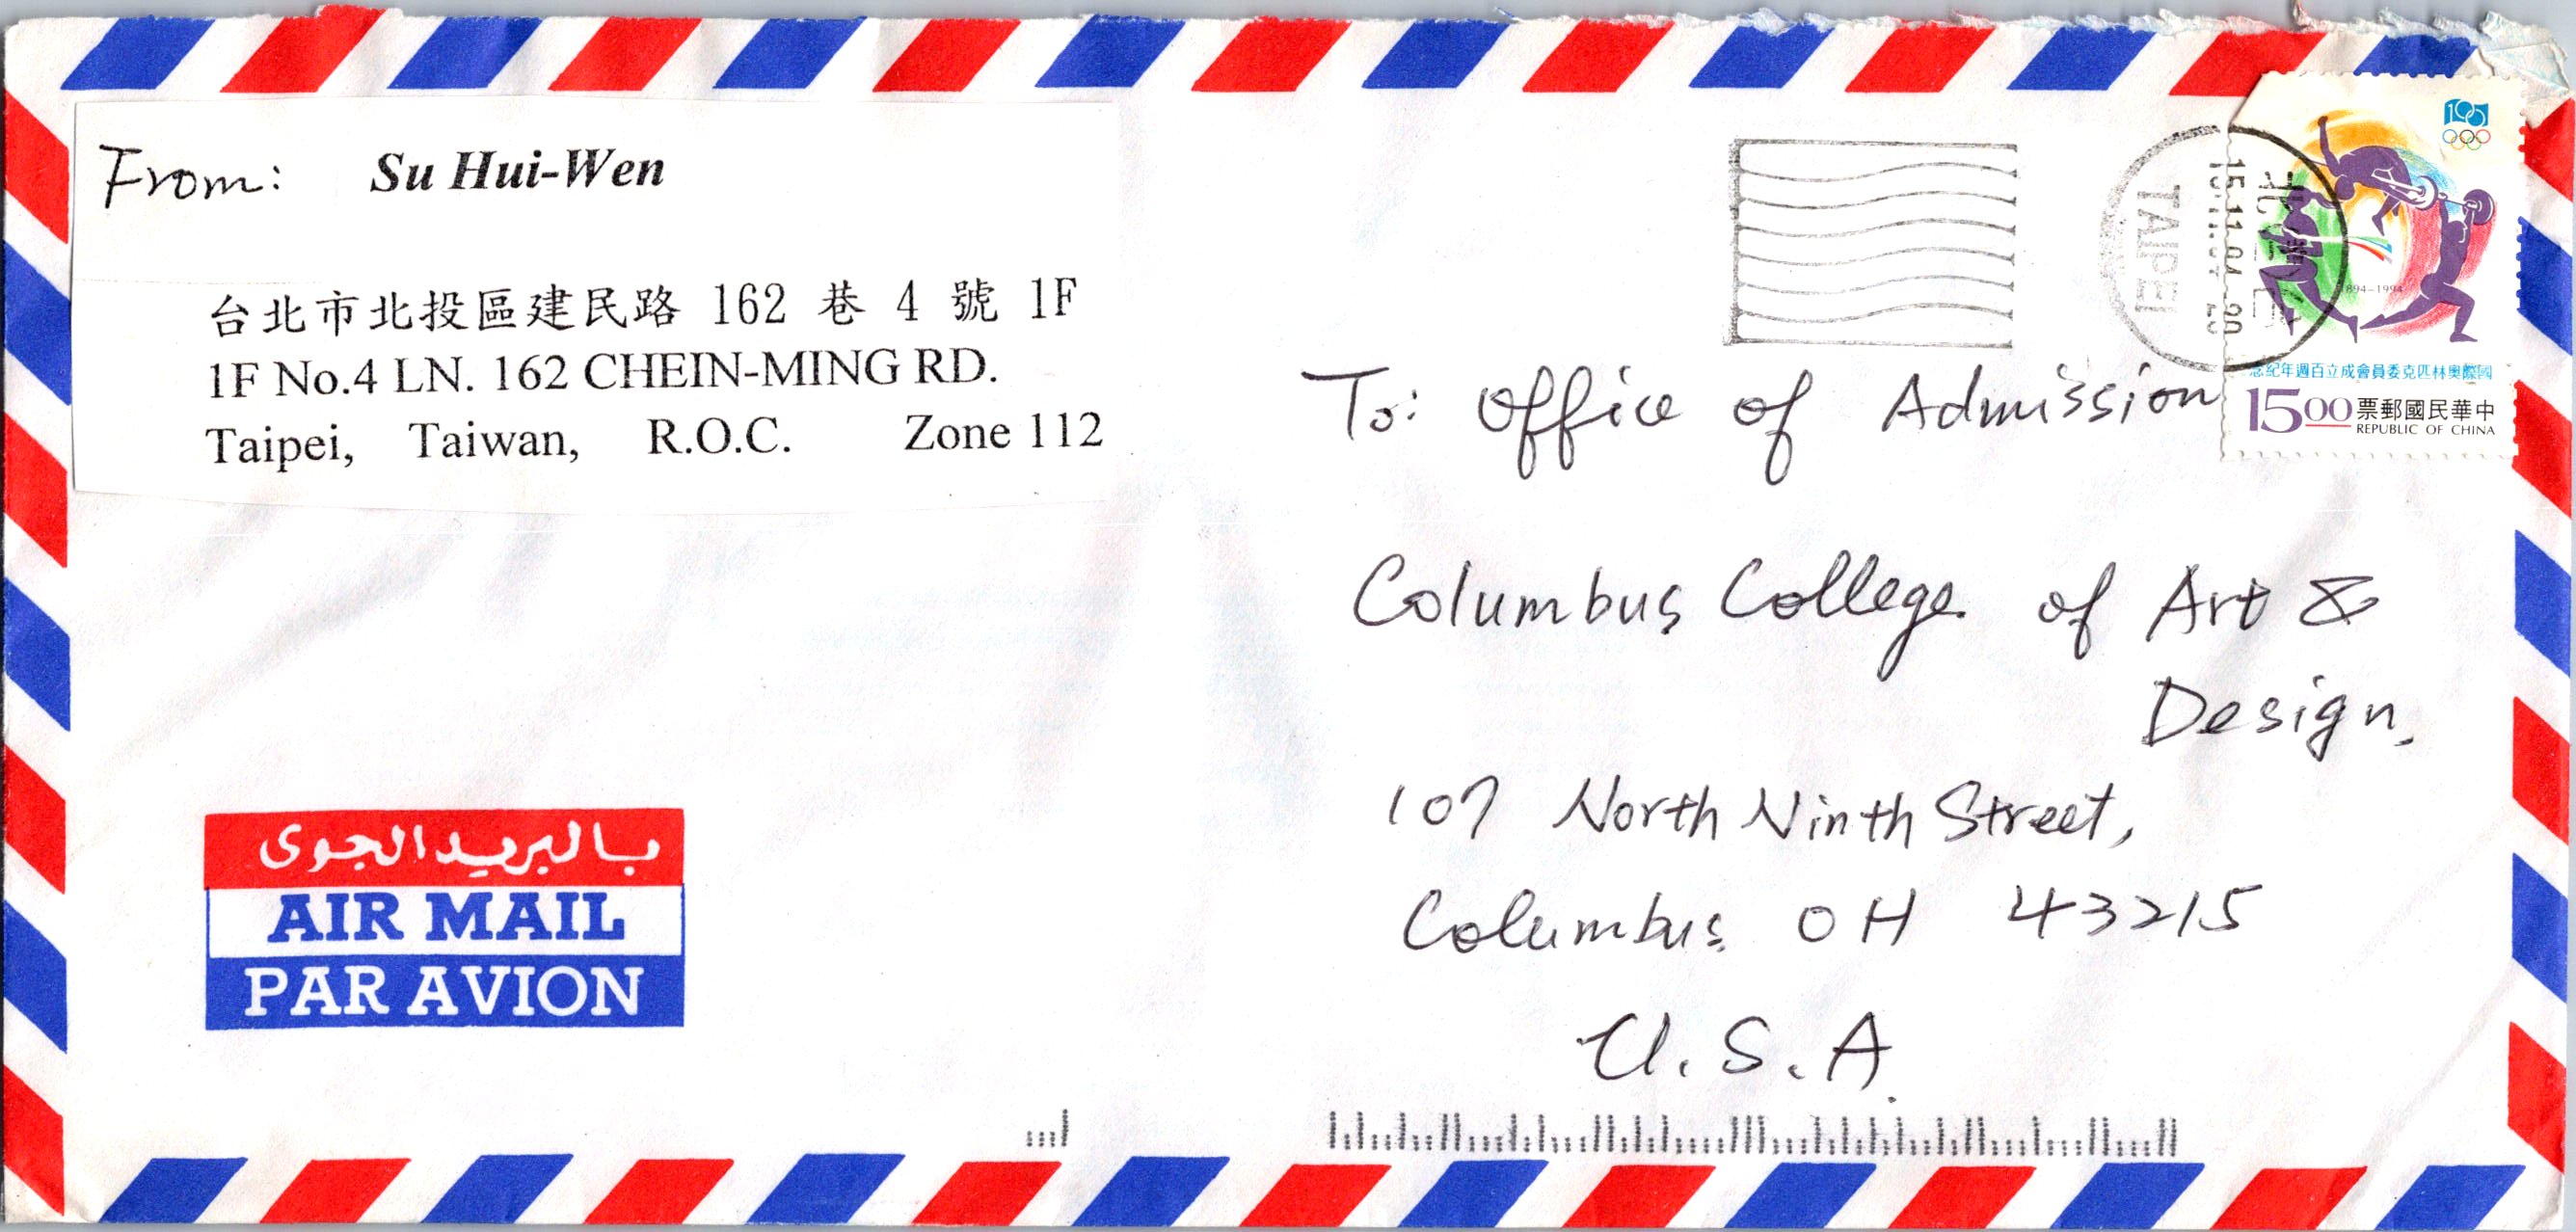 From: Su Hui-Wen
台北市北投區建民路 162 巷 4 號 1F
1F No.4 LN. 162 CHEIN-MING RD.
Taipei, Taiwan, R.O.C. Zone 112
100
1894-1994
國際奧林匹克委員會成立百週年紀念
1500 中華民國郵票
REPUBLIC OF CHINA
TAIPEI
To: Office of Admission
Columbus College of Art &
Design,
107 North Ninth Street,
Columbus, OH 43215
U.S.A.
بالبريد الجوى
AIR MAIL
PAR AVION